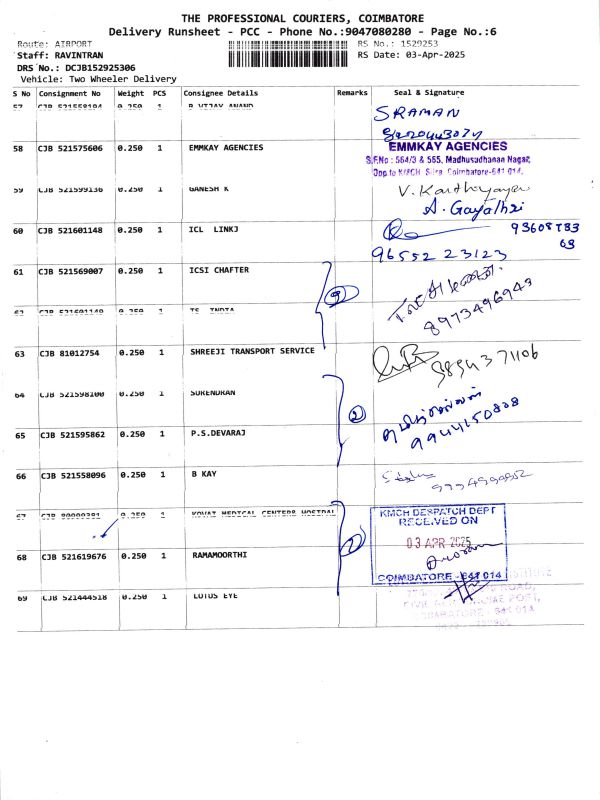 THE PROFESSIONAL COURIERS, COIMBATORE
Delivery Runsheet - PCC - Phone No.:9047080280 - Page No.:6
Route: AIRPORT RS No.: 1529253
Staff: RAVINTRAN RS Date: 03-Apr-2025
DRS No.: DCJB152925306
Vehicle: Two Wheeler Delivery
S No Consignment No Weight PCS Consignee Details Remarks Seal & Signature
57 CJB 521558194 0.250 1 B VIJAY ANAND SRAMAN
58 CJB 521575606 0.250 1 EMMKAY AGENCIES EMMKAY AGENCIES
S.F.No : 564/3 & 565, Madhusudhanan Nagar,
Opp to KMCH, Coimbatore-641 014.
59 CJB 521599136 0.250 1 GANESH K V. Karthyayen
A. Gayathri
60 CJB 521601148 0.250 1 ICL LINKJ
96552 23123
61 CJB 521569007 0.250 1 ICSI CHAFTER
8973496943
62 CJB 521601149 0.250 1 INDIA
63 CJB 81012754 0.250 1 SHREEJI TRANSPORT SERVICE
64 CJB 521598100 0.250 1 SURENDRAN
2
65 CJB 521595862 0.250 1 P.S.DEVARAJ 9944150808
66 CJB 521558096 0.250 1 B KAY
67 0.250 1 KOVAI MEDICAL CENTER& HOSTPAL KMCH DESPATCH DEPT
RECEIVED ON
03 APR 2025
68 CJB 521619676 0.250 1 RAMAMOORTHI
COIMBATORE - 641 014
69 CJB 521444518 0.250 1 LOTUS EYE